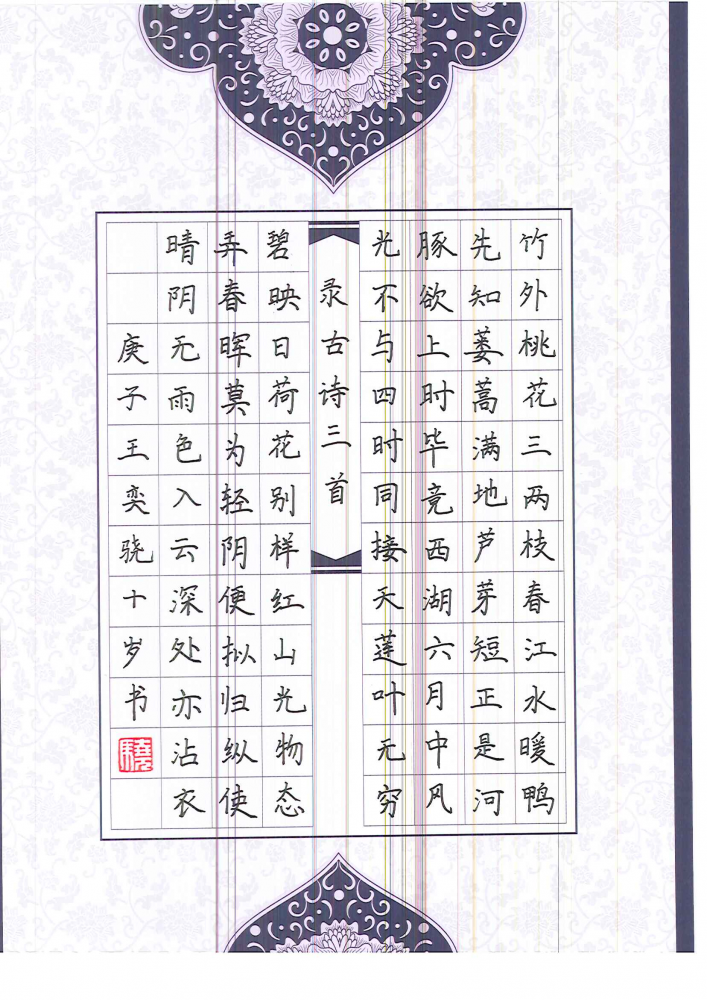 竹外桃花三两枝春江水暖鸭
先知蒌蒿满地芦芽短正是河
豚欲上时毕竟西湖六月中风
光不与四时同接天莲叶无穷
录古诗三首
碧映日荷花别样红山光物态
弄春晖莫为轻阴便拟归纵使
晴阴无雨色入云深处亦沾衣
庚子王奕骁十岁书
驍